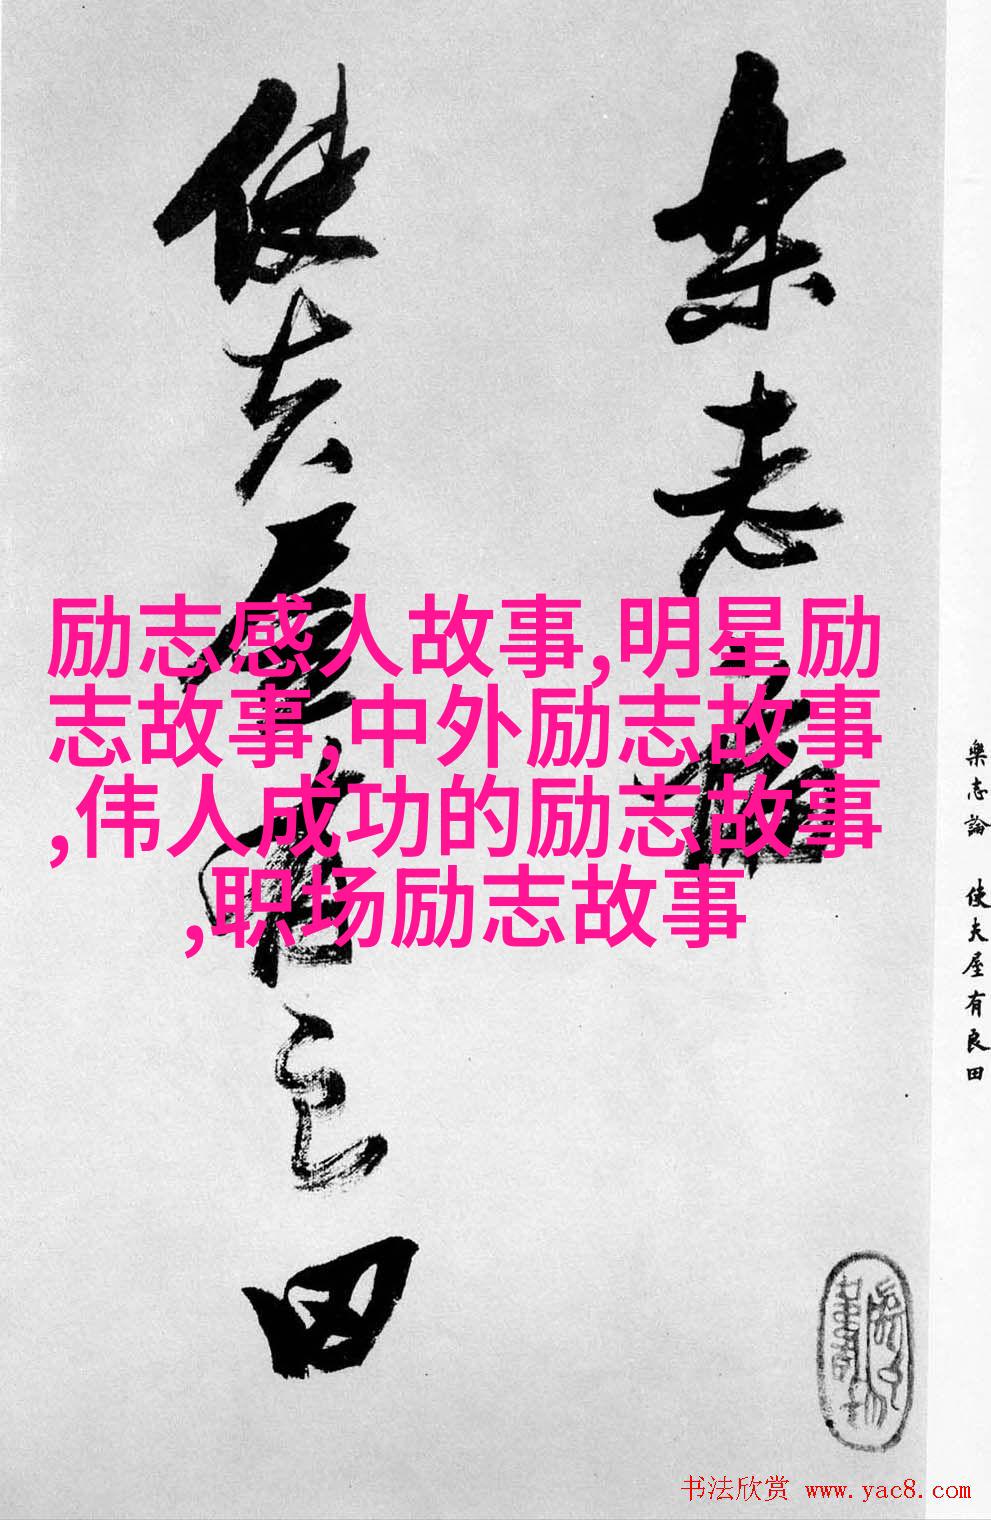 樂志論
使夫屋有良田
励志感人故事,明星励
志故事,中外励志故事
,伟人成功的励志故事
,职场励志故事
樂志論 使夫屋有良田
书法欣赏 www.yac8.com